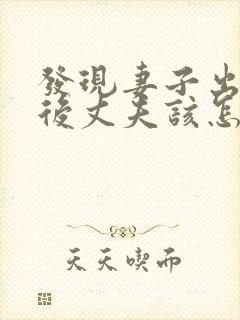 發現妻子出
後丈夫該怎
天天喫而